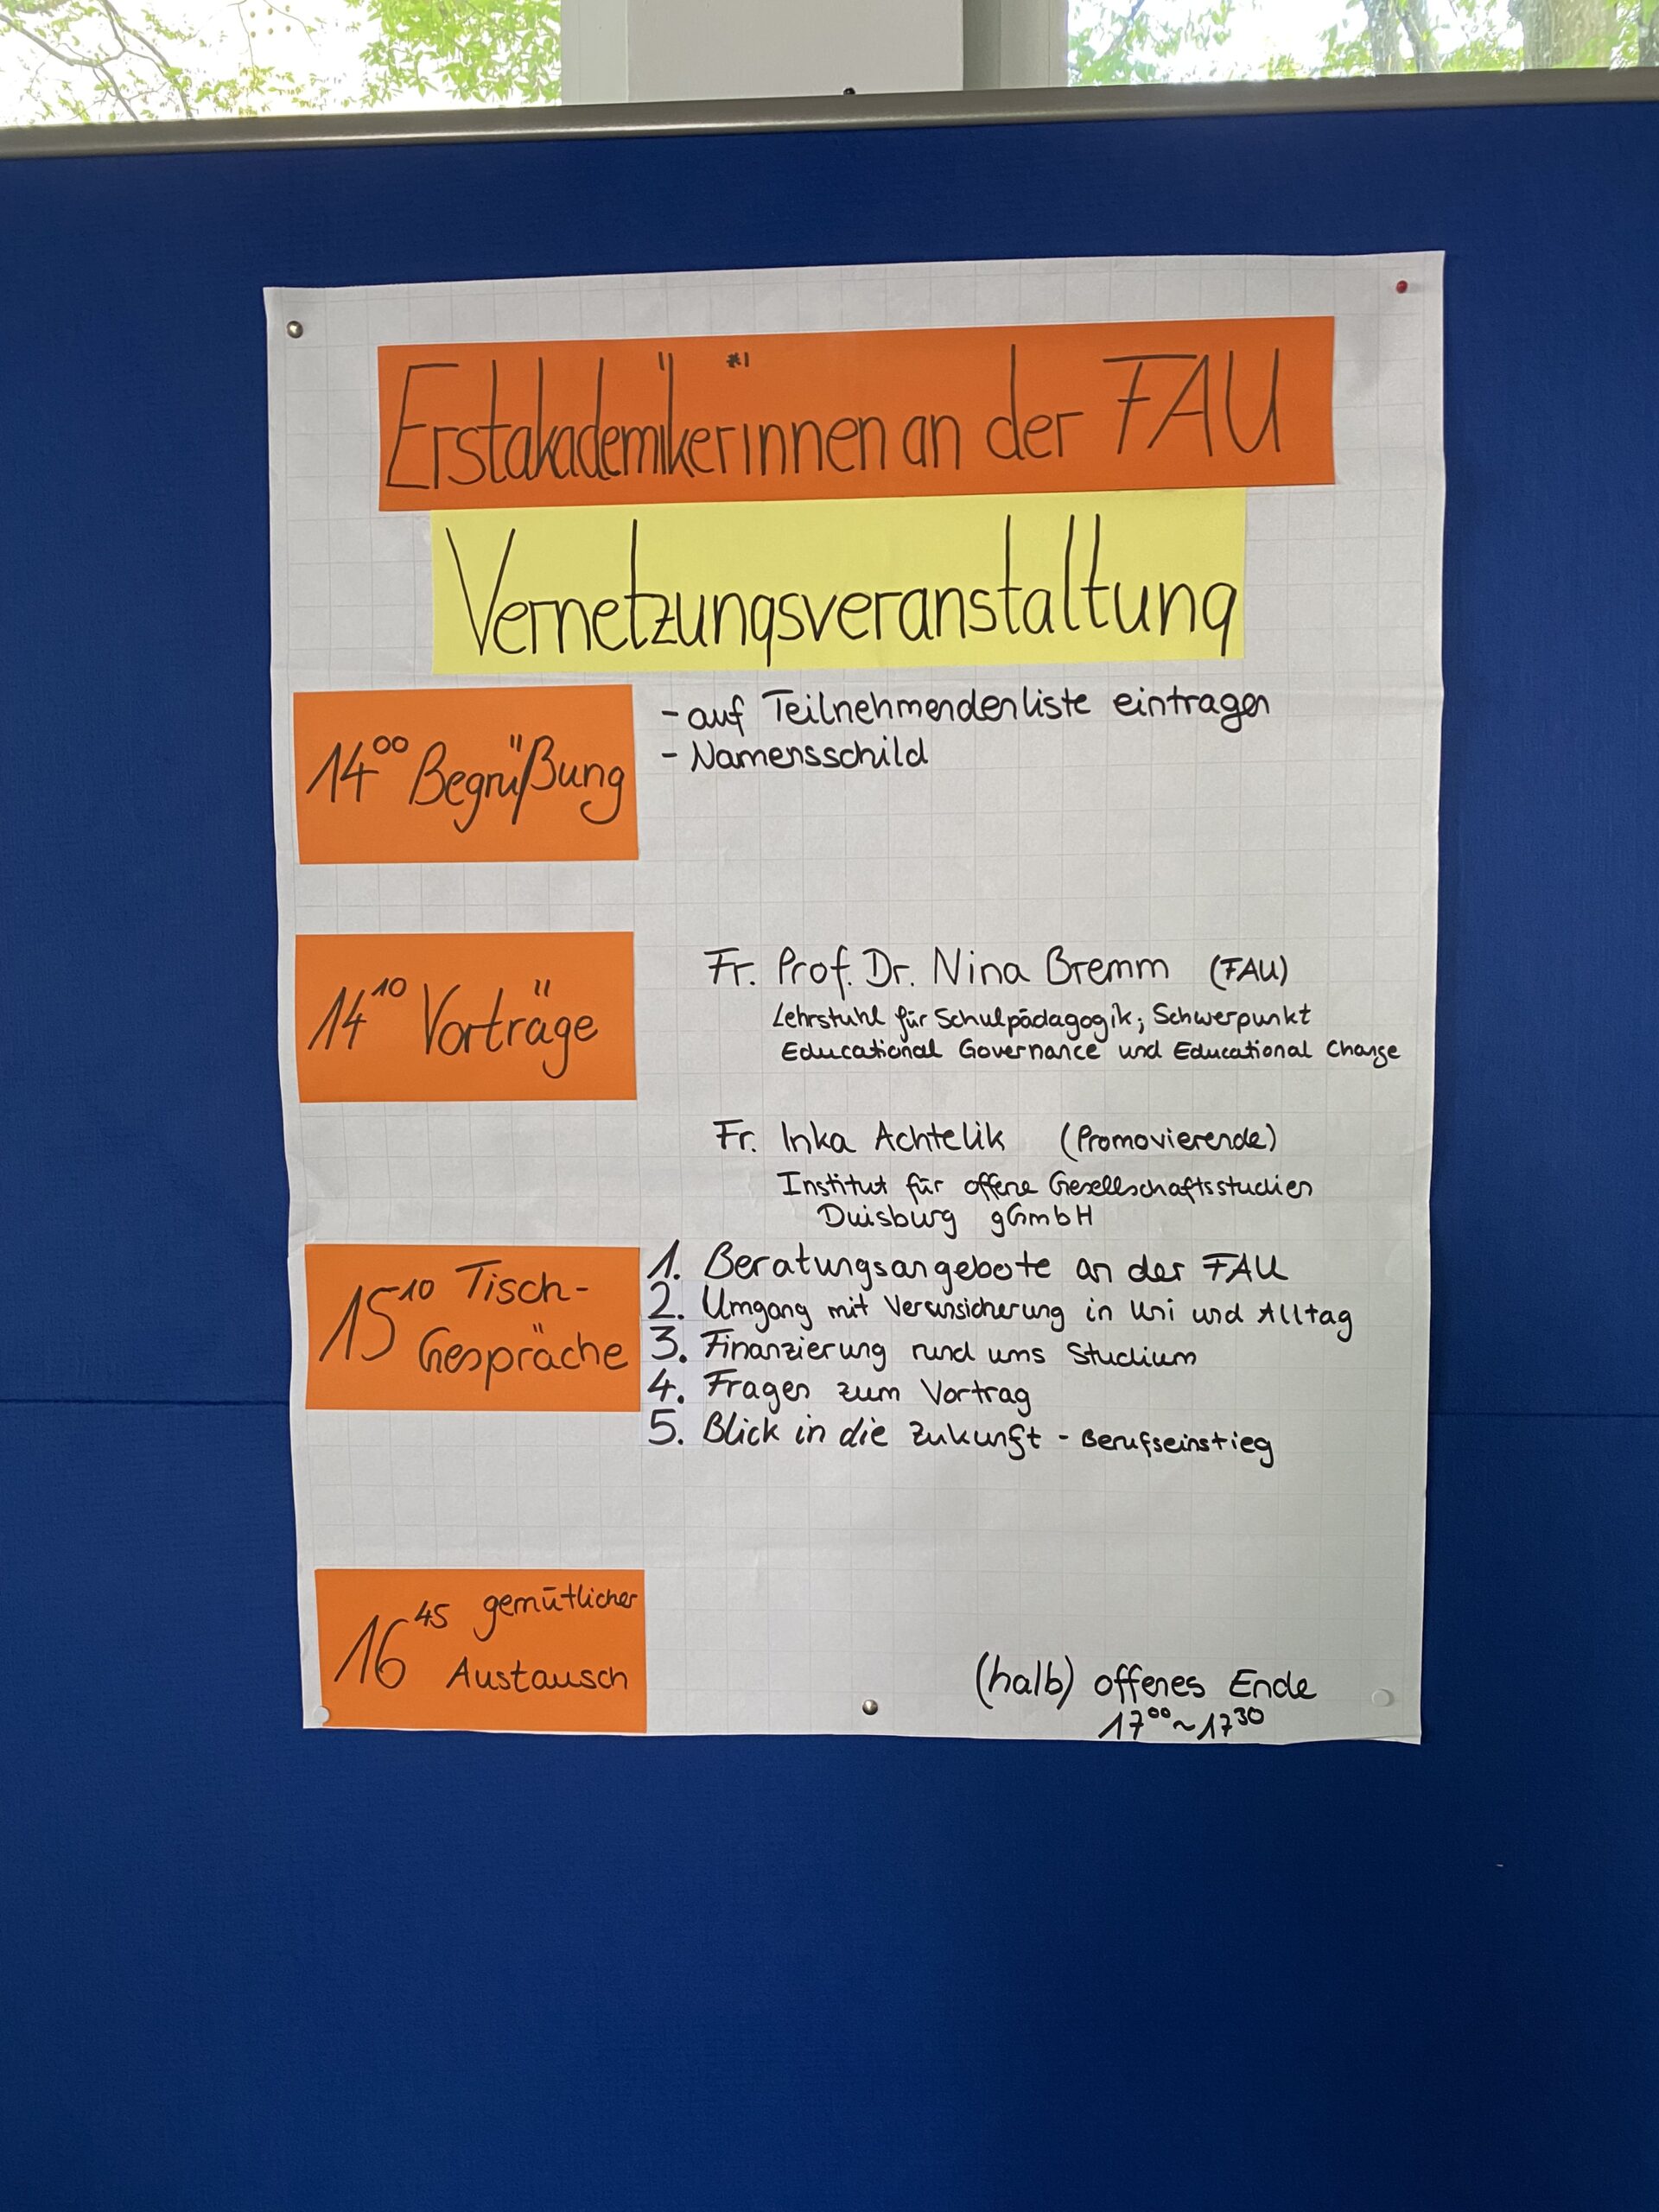 Erstakademiker*innen an der FAU
Vernetzungsveranstaltung
14⁰⁰ Begrüßung
- auf Teilnehmendenliste eintragen
- Namensschild
14¹⁰ Vorträge
Fr. Prof. Dr. Nina Bremm (FAU)
Lehrstuhl für Schulpädagogik; Schwerpunkt
Educational Governance und Educational Change
Fr. Inka Achtelik (Promovierende)
Institut für offene Gesellschaftsstudien
Duisburg gGmbH
15¹⁰ Tisch-
Gespräche
1. Beratungsangebote an der FAU
2. Umgang mit Verunsicherung in Uni und Alltag
3. Finanzierung rund ums Studium
4. Fragen zum Vortrag
5. Blick in die Zukunft - Berufseinstieg
16⁴⁵ gemütlicher
Austausch
(halb) offenes Ende
17⁰⁰~17³⁰